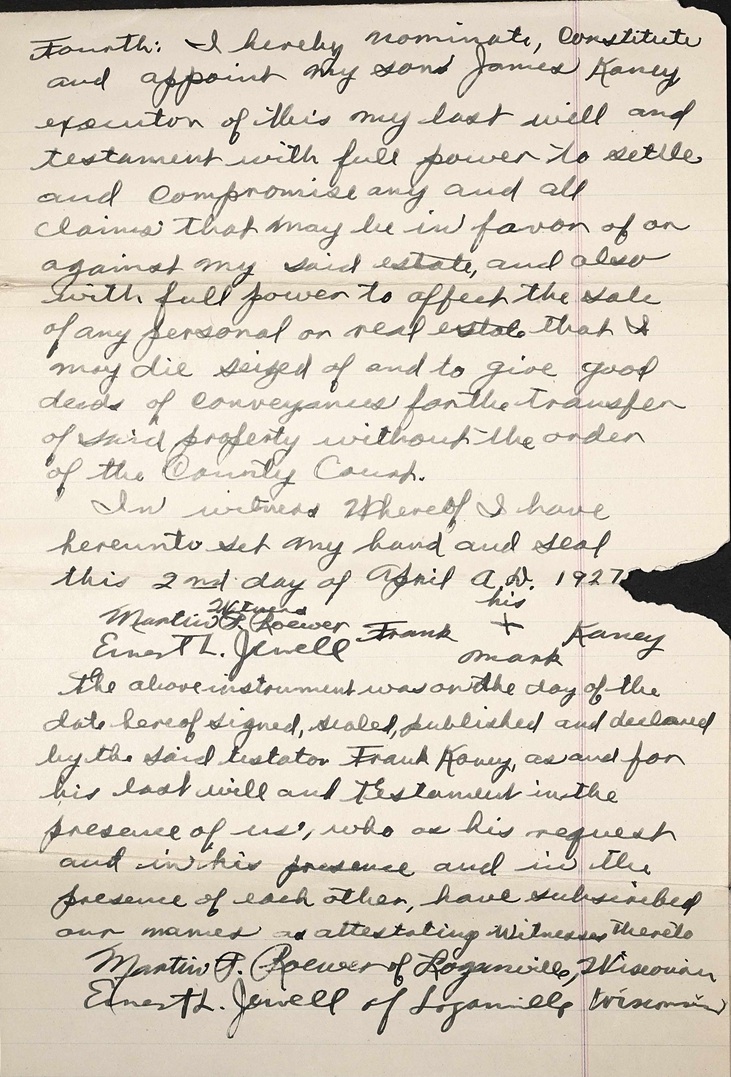 Fourth: I hereby nominate, constitute
and appoint my son James Kaney
executor of this my last will and
testament with full power to settle
and compromise any and all
claims that may be in favor of or
against my said estate, and also
with full power to affect the sale
of any personal or real estate that I
may die seized of and to give good
deeds of conveyances for the transfer
of said property without the order
of the County Court.
In witness Whereof I have
hereunto set my hand and seal
this 2nd day of April A.D. 1927
Witness his
Martin F. Roewer Frank + Kaney
Ernest L. Jewell mark
The above instrument was on the day of the
date hereof signed, sealed, published and declared
by the said testator Frank Kaney, as and for
his last will and testament in the
presence of us, who as his request
and in his presence and in the
presence of each other, have subscribed
our names as attestating Witnesses thereto
Martin F. Roewer of Loganville, Wisconsin
Ernest L. Jewell of Loganville Wisconsin